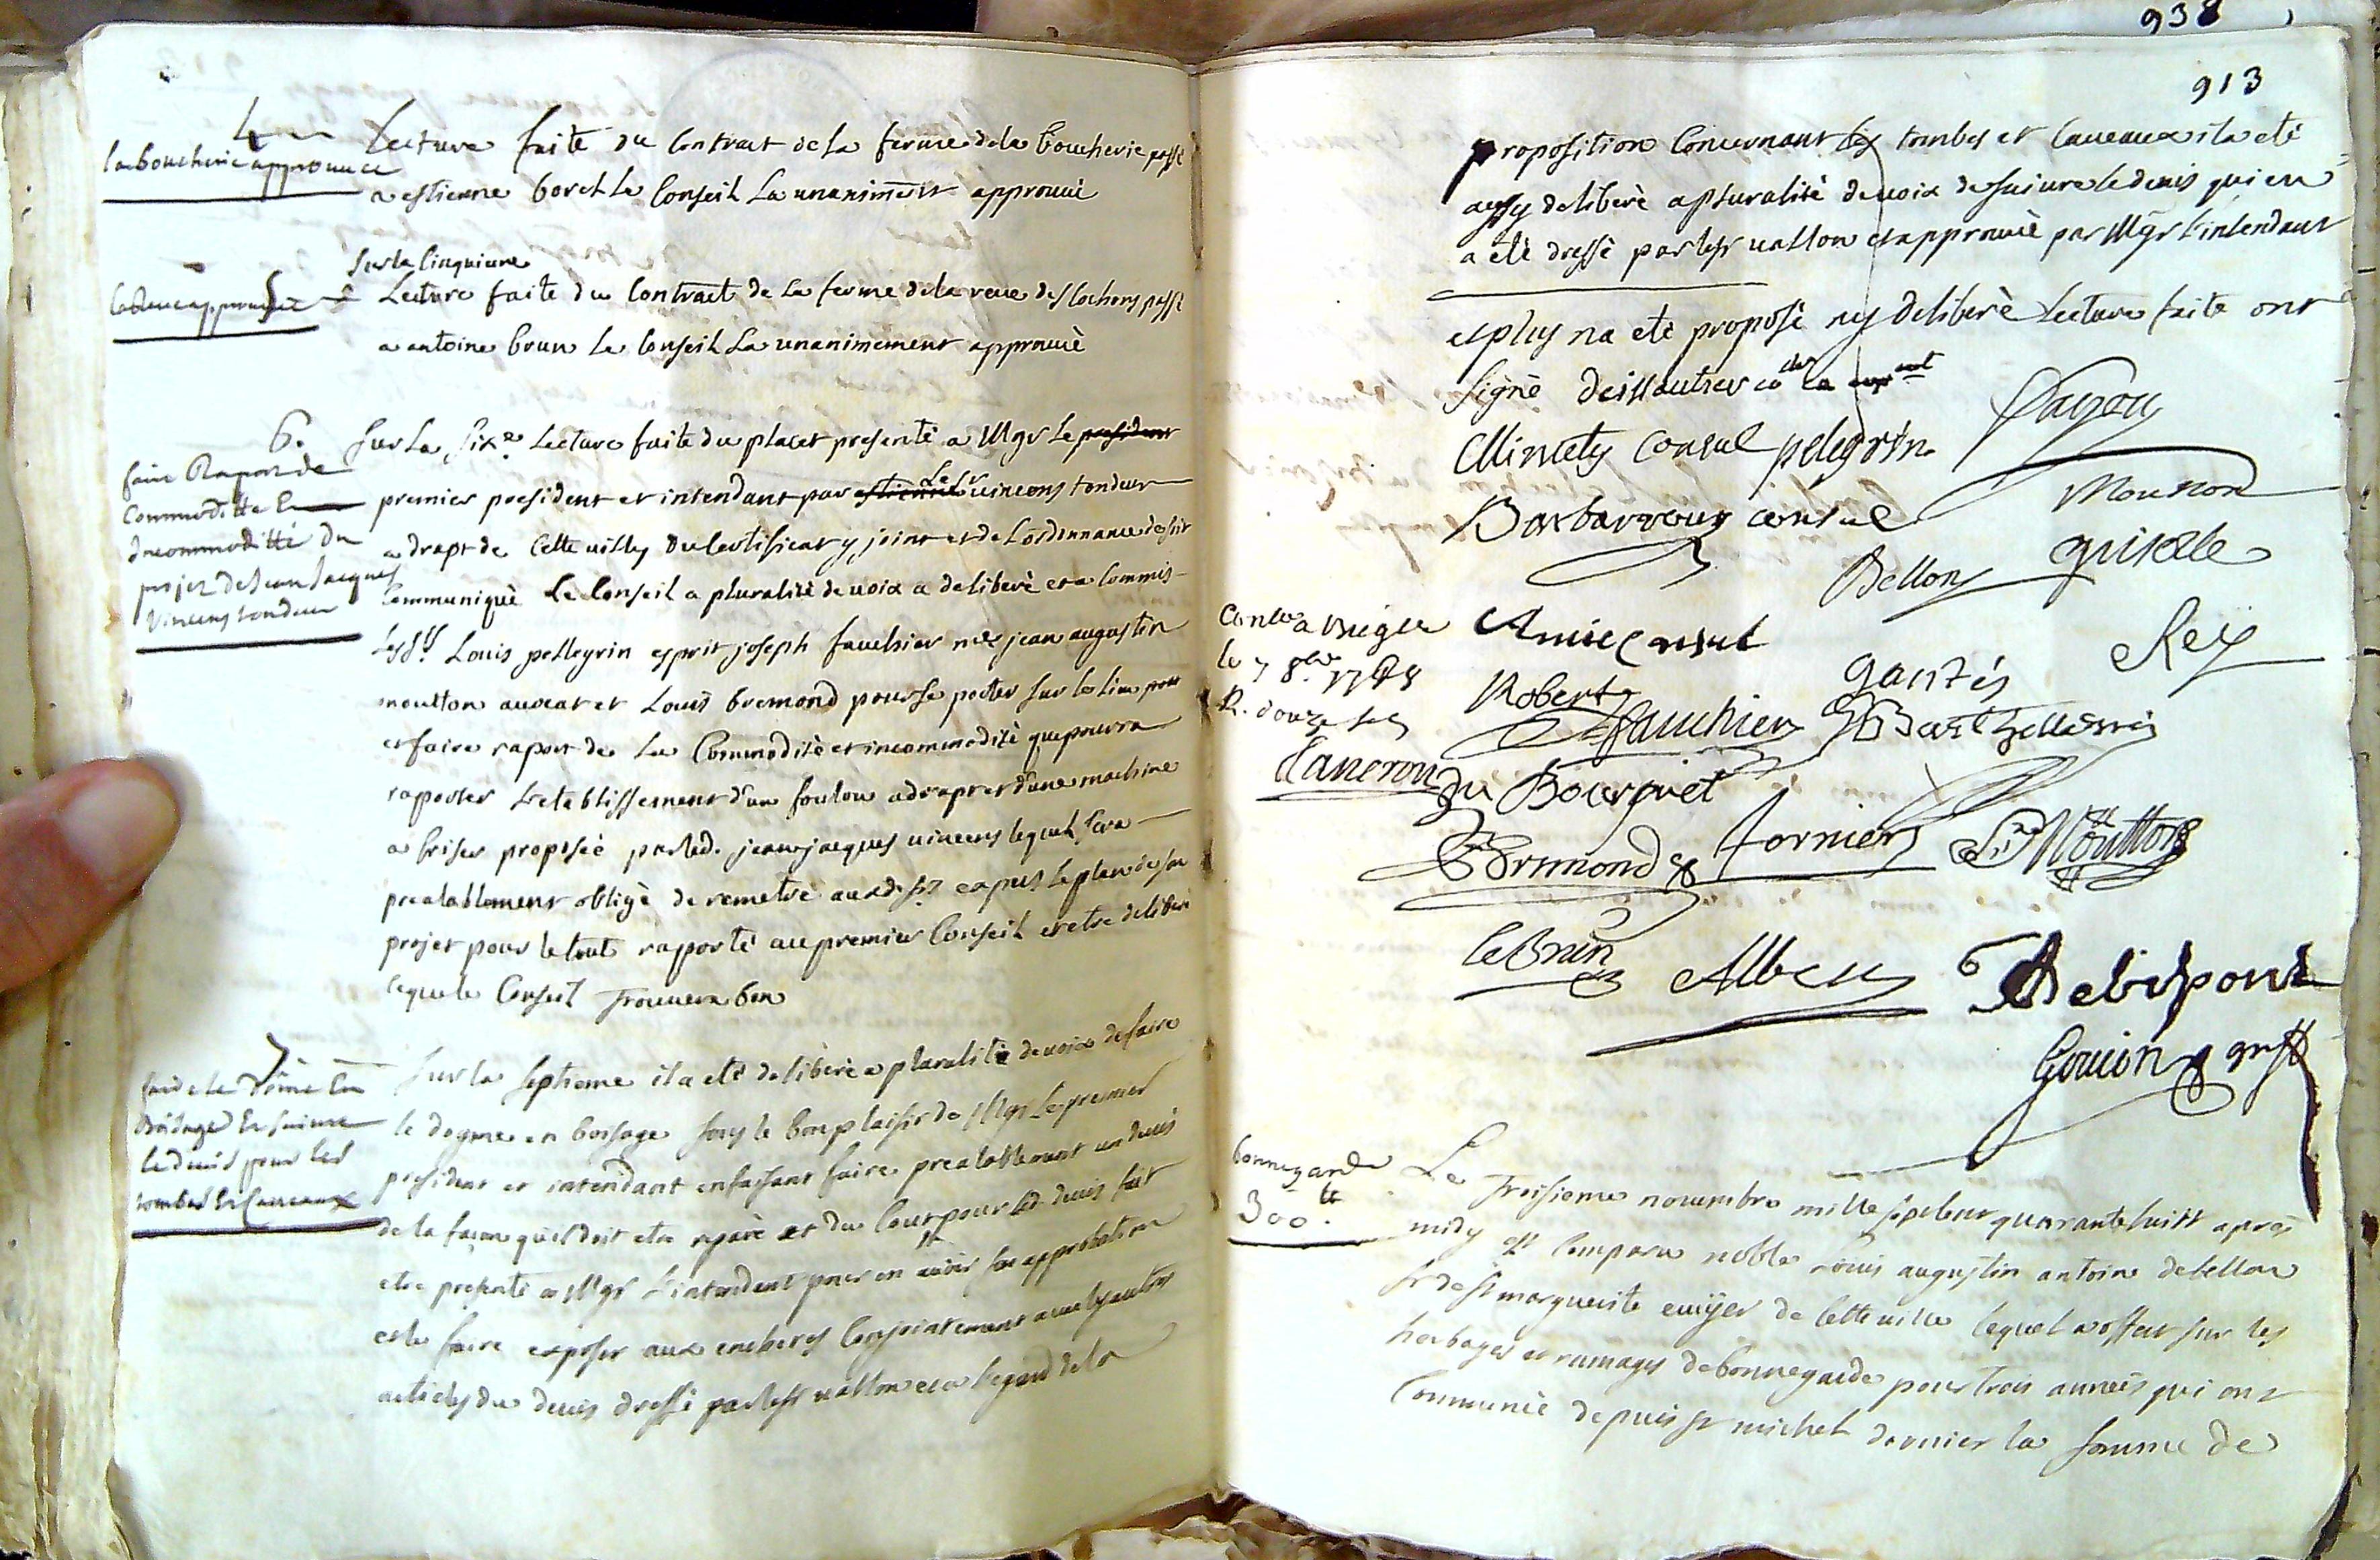 4
la boucherie approuvee
Lecture faite du Contract de la ferme de la boucherie passé
a estienne boret le Conseil La unanimemt approuvé
5
Sur la Cinquieme
Lecture faite du Contract de la ferme de la reve des cochons passé
a antoine brun le Conseil La unanimement approuvé
6.
faire Raport de
Commoditte Et
Incommoditté du
projet de Jean Jacques
vincens tondeur
Sur la sixe. Lecture faite du placet presenté a Mgr Le president
premier president et intendant par estienne Le Sr vincens tondeur
a drapt de Cette ville, du Certificat y joint et de Lordonnance de soit
Communiqué Le Conseil a pluralité de voix a deliberé et a Commis
les Srs Louis pellegrin esprit joseph fauchier me jean augustin
moutton avocat et Louis bremond pour se porter sur le lieu pour
et faire raport de La Commodité et incommodité que pourra
raporter L'etablissement d'un foulon a drapt et d'une machine
a friser proposée par led. jean jacques vincens lequel sera
prealablement obligé de remetre auxd. srs expers le plan de son
projet pour le tout rapporté au premier Conseil et etre deliberé
ce que le Conseil Trouvera bon
7
faire le Dome En
Boisage Et suivre
le devis pour les
tombes Et Caveaux
Sur la septieme il a eté deliberé a pluralité de voix de faire
le dogme en boisage sous le bon plaisir de Mgr Le premier
president et intendant en faisant faire prealablement un devis
de la façon qu'il doit etre reparé et du Cout pour led. devis fait
etre presenté a Mgr L'intendant pour en avoir son approbation
et le faire exposer aux encheres Conjointement avec les autres
articles du devis dressé par le sr vallon et a l'egard de la
938
913
proposition Concernant les tombes et Caveaux il a eté
aussy deliberé a pluralité de voix de suivre le devis qui en
a eté dressé par le sr vallon et approuvé par Mgr L'intendant
et plus na eté proposé ny deliberé Lecture faite ont
signé
Payan
Mincty Consul pelegrin
Mounon
Barbarroux consul
Bellon
griselle
Amic Consul
Rey
le 7 8bre 1748
R. douze sols
Robert
gantés
fauchier
Barthellemi
du Bourguet
Brimond
fornier
Moutton
le Brun
Alben
Gouin greff
bonnegarde
300 tt
Le Troisieme novembre mille sept cent quarante huitt aprés
midy est Comparu noble Louis augustin antoine de bellon
sr de ste marguerite ecuÿer de Cette ville lequel a offert sur les
herbages et ramages de bonnegarde pour trois années qui ont
Commencé depuis st michel dernier la somme de